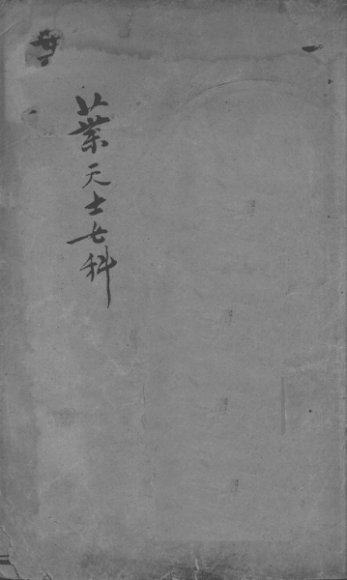 葉天士女科